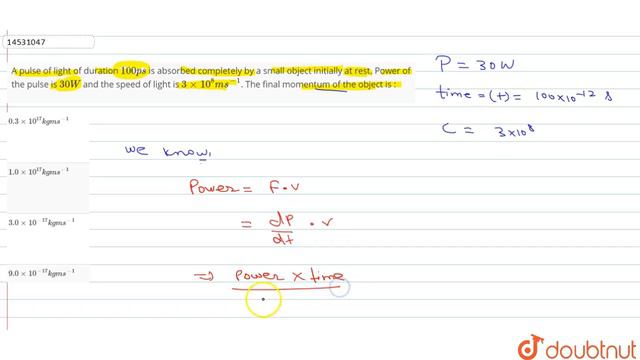 14531047
A pulse of light of duration 100ps is absorbed completely by a small object initially at rest, Power of
the pulse is 30W and the speed of light is 3 × 10⁸ms⁻¹. The final momentum of the object is :
0.3 × 10¹⁷kgms⁻¹
1.0 × 10¹⁷kgms⁻¹
3.0 × 10⁻¹⁷kgms⁻¹
9.0 × 10⁻¹⁷kgms⁻¹
P = 30W
time = (t) = 100×10⁻¹² s
C = 3×10⁸
we know,
Power = F · v
= dP/dt · v
⇒ Power × time
doubtnut